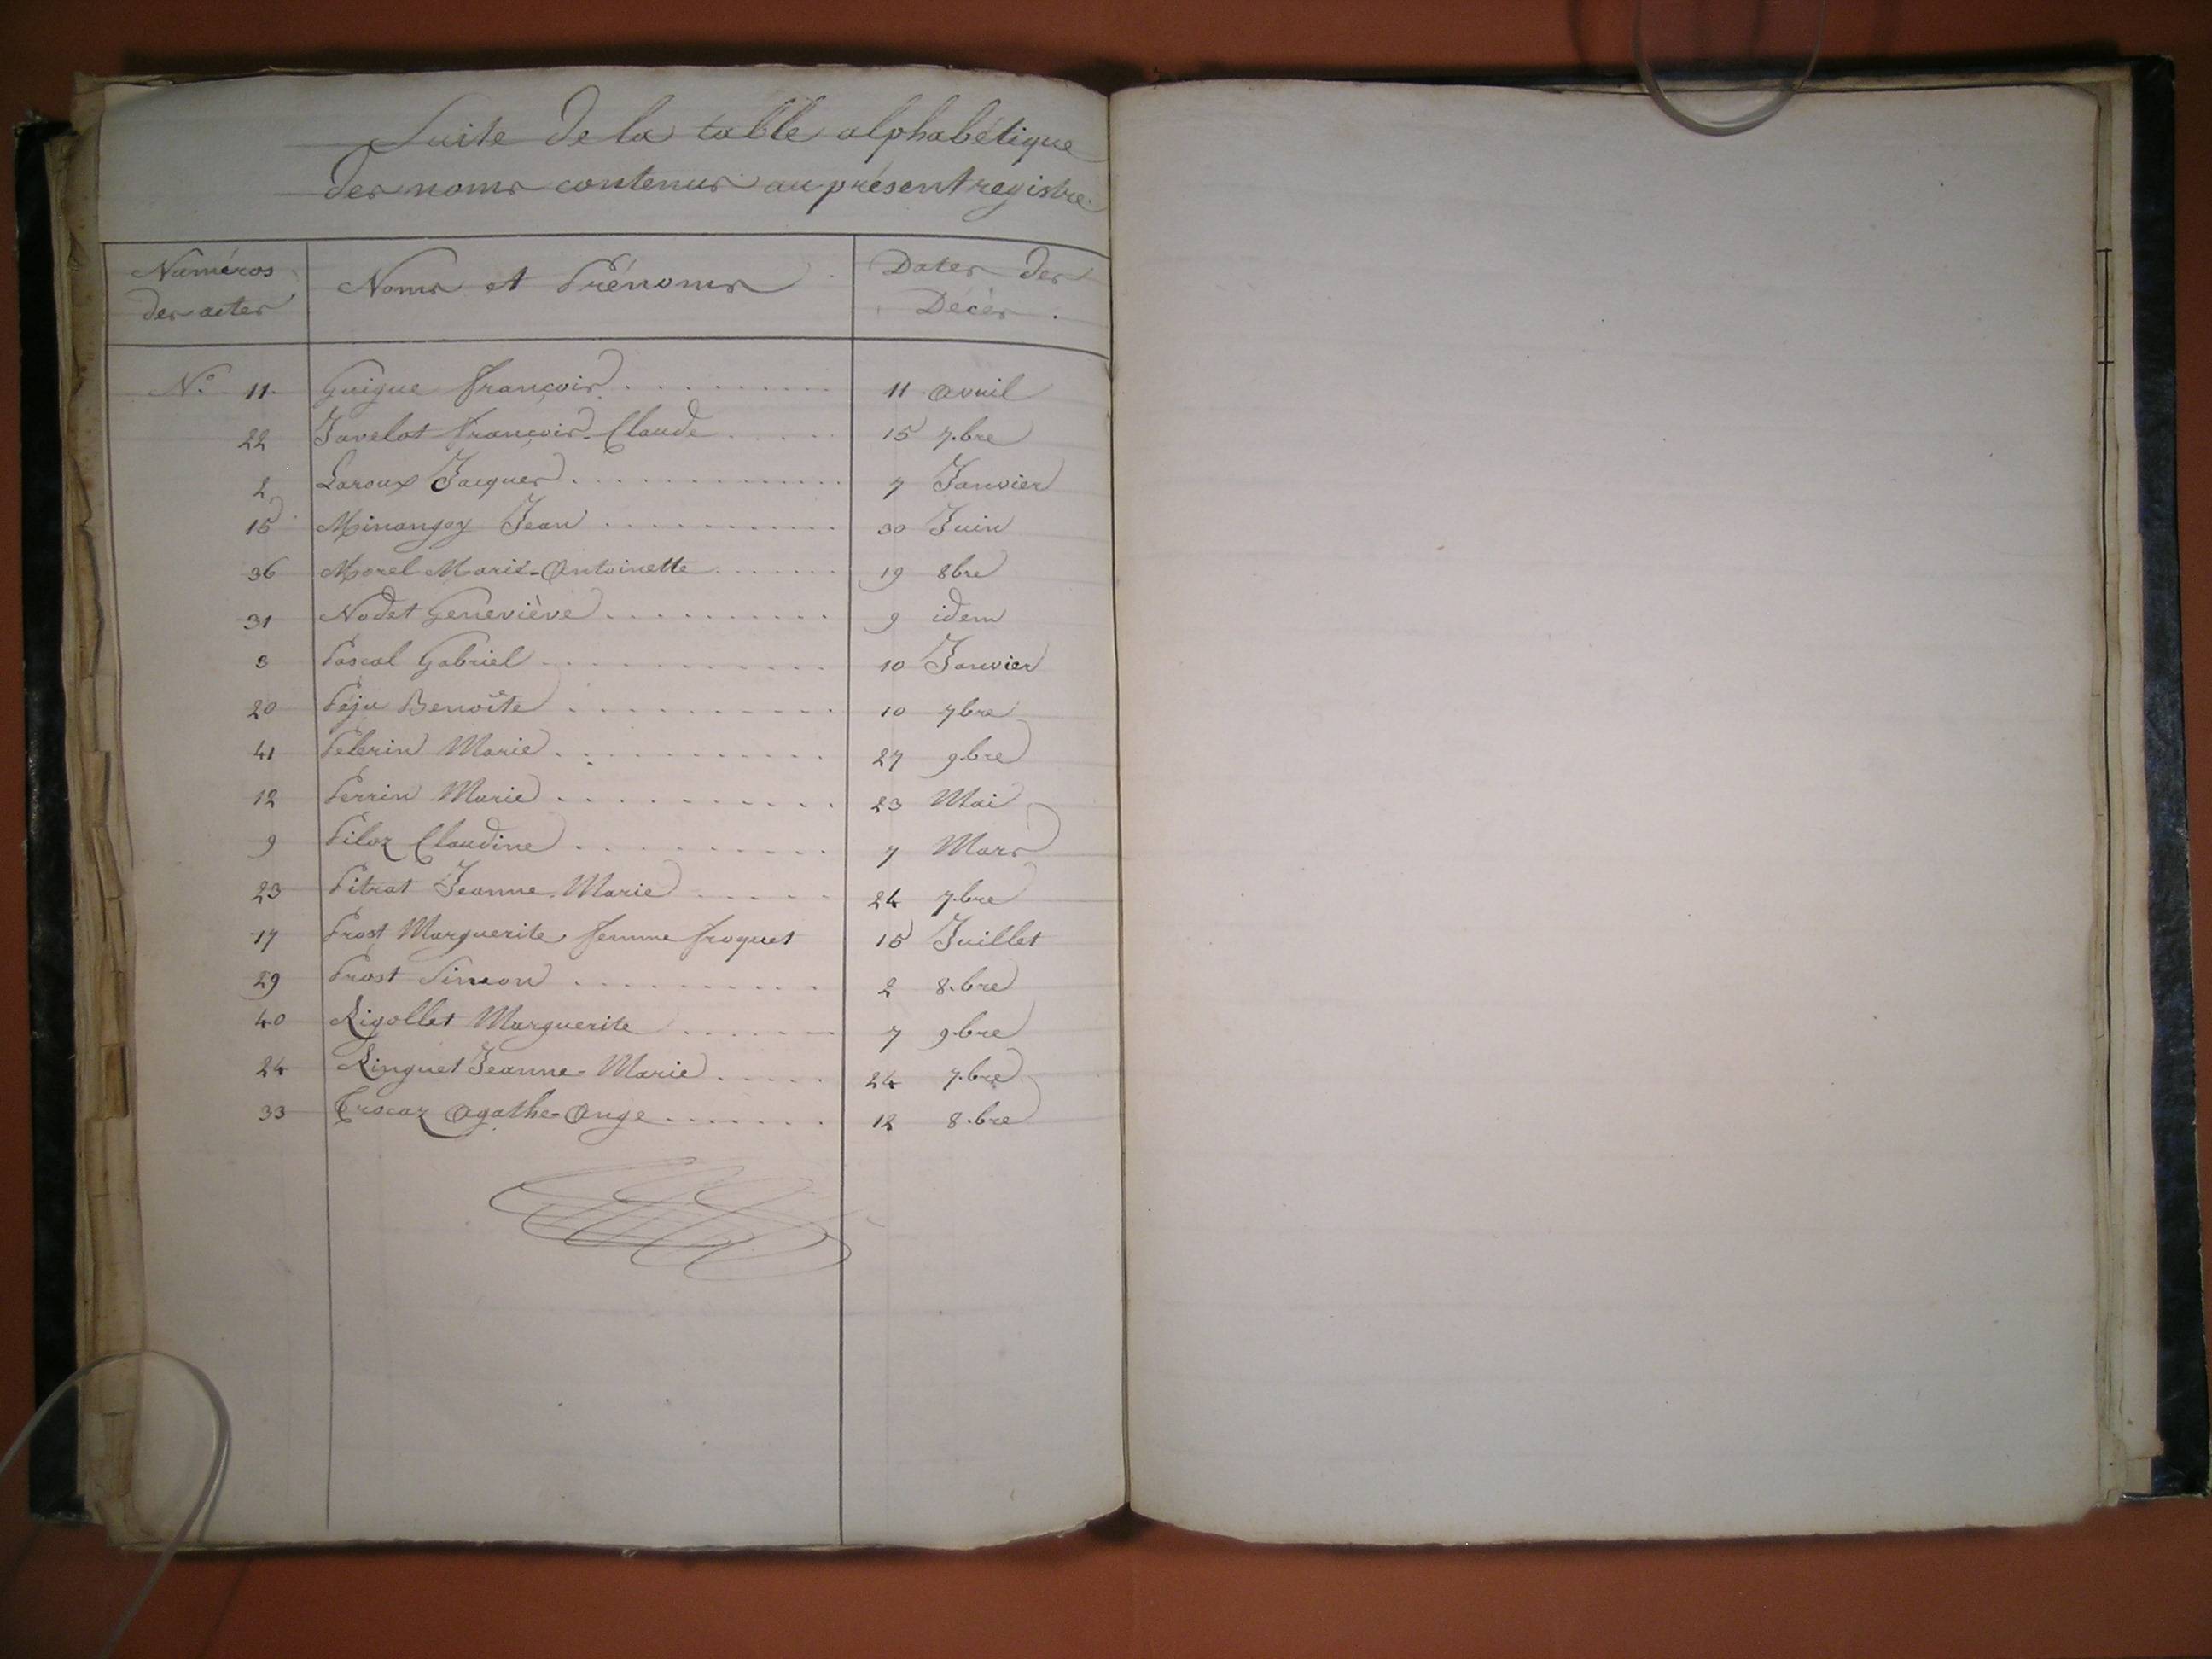 Suite de la table alphabétique
des noms contenus au présent registre.
Numéros des actes Noms et Prénoms Dates des Décès.
N.° 11. Guigue François 11 avril
22 Javelot François-Claude 15 7.bre
2 Laroux Jacques 7 Janvier
15 Minangoy Jean 30 Juin
36 Morel Marie-Antoinette 19 8bre
31 Nodet Geneviève 9 idem
3 Pascal Gabriel 10 Janvier
20 Péju Benoîte 10 7bre
41 Pelerin Marie 27 9.bre
12 Perrin Marie 23 Mai
9 Piloz Claudine 7 Mars
23 Pitrat Jeanne-Marie 24 7.bre
17 Prost Marguerite femme froquet 15 Juillet
29 Prost Simon 2 8.bre
40 Rigollet Marguerite 7 9.bre
24 Ringuet Jeanne-Marie 24 7.bre
33 Trocaz Agathe-Ange 12 8.bre